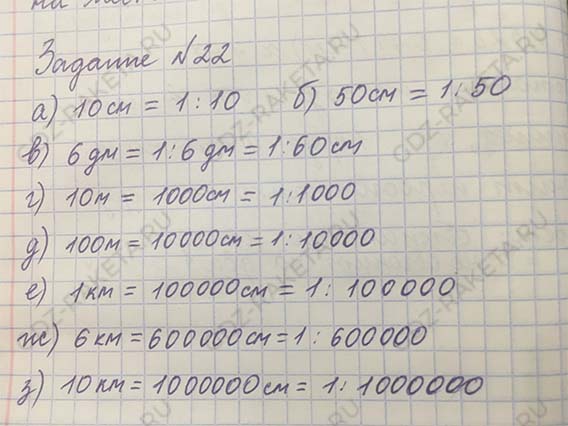 Задание №22
а) 10см = 1:10 б) 50см = 1:50
в) 6дм = 1:6дм = 1:60см
г) 10м = 1000см = 1:1000
д) 100м = 10000см = 1:10000
е) 1км = 100000см = 1:100000
ж) 6км = 600000см = 1:600000
з) 10км = 1000000см = 1:1000000
GDZ-RAKETA.RU
GDZ-RAKETA.RU
GDZ-RAKETA.RU
GDZ-RAKETA.RU